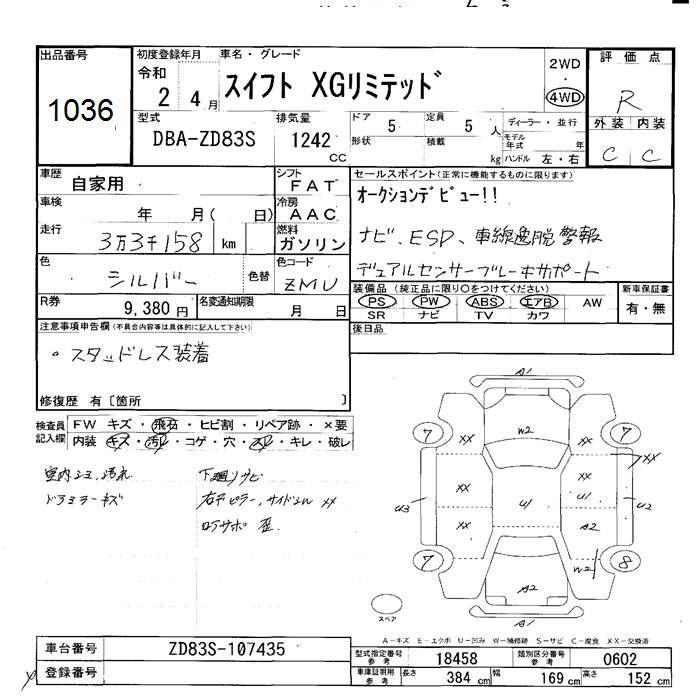 出品番号
1036
初度登録年月
令和
2 4月
車名・グレード
スイフト XGリミテッド
2WD
・
4WD
評価点
R
外装 内装
C C
型式
DBA-ZD83S
排気量
1242
CC
ドア 5
定員 5 人
形状
積載 kg
ディーラー・並行
モデル年式 年
ハンドル 左・右
車歴
自家用
シフト
FAT
車検
年 月( 日)
冷房
AAC
走行
3万3千158 km
燃料
ガソリン
色
シルバー
色替
色コード
ZMU
R券
9,380 円
名変通知期限
月 日
セールスポイント(正常に機能するものに限ります)
オークションデビュー!!
ナビ、ESP、車線逸脱警報
デュアルセンサーブレーキサポート
装備品(純正品に限り○をつけてください)
PS PW ABS エアB AW
SR ナビ TV カワ
新車保証書
有・無
後日品
注意事項申告欄(不具合内容等は具体的に記入して下さい)
・スタッドレス装着
修復歴 有〔箇所 〕
検査員記入欄
FW キズ・飛石・ヒビ割・リペア跡・×要
内装 キズ・汚れ・コゲ・穴・スレ・キレ・破レ
室内シミ、汚れ
ドアミラーキズ
下廻りサビ
右Fピラー、サイドシル XX
ロアサポ 歪
A1
7 XX W2 XX 7
XX
XX U1 XX U1
U3 U2
XX A2
7 W2 8
A2
A1
スペア
A-キズ E-エクボ U-凹み W-補修跡 S-サビ C-腐食 XX-交換済
車台番号
ZD83S-107435
登録番号
型式指定番号 参考
18458
類別区分番号 参考
0602
車庫証明用 参考
長さ 384 cm
幅 169 cm
高さ 152 cm